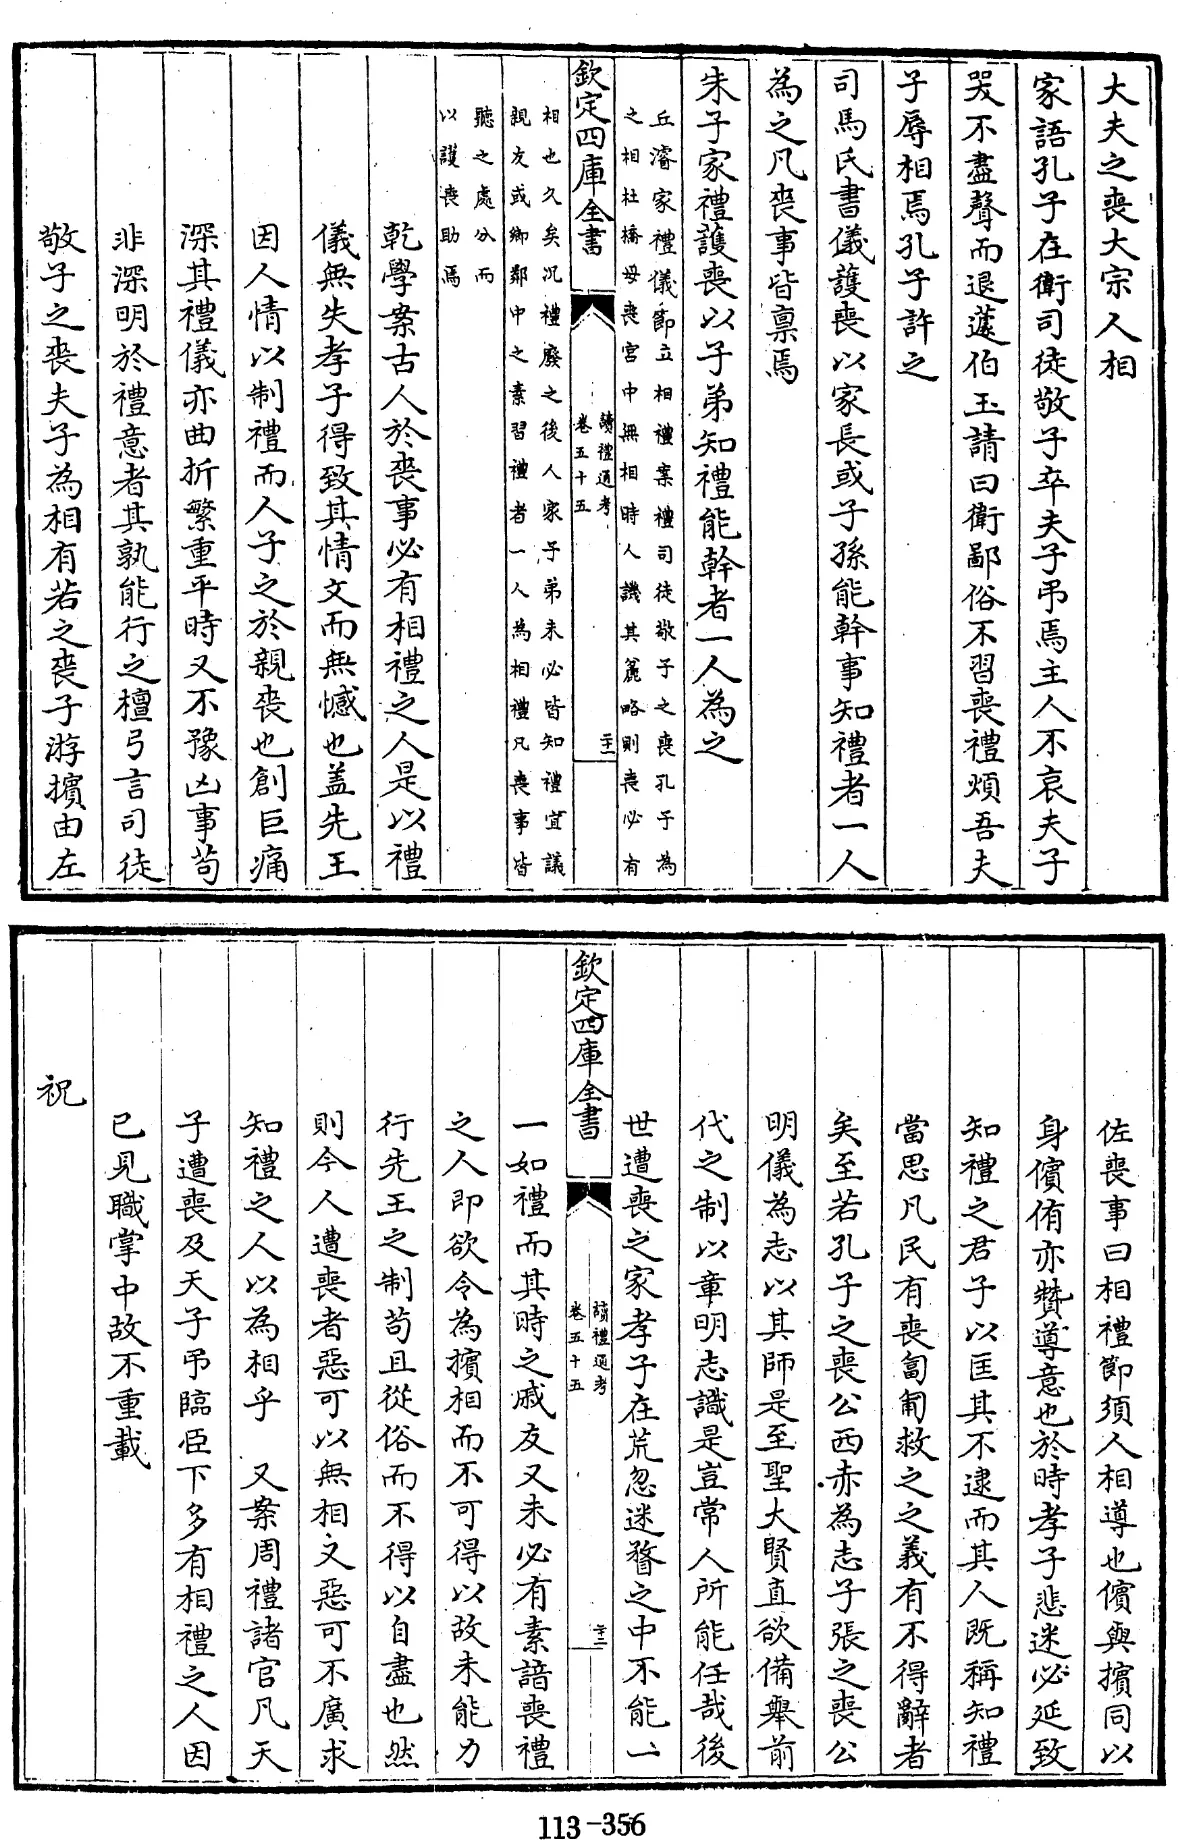 大夫之喪大宗人相
家語孔子在衛司徒敬子卒夫子弔焉主人不哀夫子
哭不盡聲而退蘧伯玉請曰衛鄙俗不習喪禮煩吾夫
子辱相焉孔子許之
司馬氏書儀護喪以家長或子孫能幹事知禮者一人
為之凡喪事皆稟焉
朱子家禮護喪以子弟知禮能幹者一人為之
丘濬家禮儀節立相禮案禮司徒敬子之喪孔子為
之相杜橋母喪宮中無相時人譏其麄略則喪必有
欽定四庫全書
讀禮通考
卷五十五
二十一
相也久矣况禮廢之後人家子弟未必皆知禮宜議
親友或鄉鄰中之素習禮者一人為相禮凡喪事皆
聽之處分而
以護喪助焉
乾學案古人於喪事必有相禮之人是以禮
儀無失孝子得致其情文而無憾也盖先王
因人情以制禮而人子之於親喪也創巨痛
深其禮儀亦曲折繁重平時又不豫凶事苟
非深明於禮意者其孰能行之檀弓言司徒
敬子之喪夫子為相有若之喪子游擯由左
佐喪事曰相禮節須人相導也儐與擯同以
身儐侑亦贊導意也於時孝子悲迷必延致
知禮之君子以匡其不逮而其人既稱知禮
當思凡民有喪匍匐救之之義有不得辭者
矣至若孔子之喪公西赤為志子張之喪公
明儀為志以其師是至聖大賢直欲備舉前
代之制以章明志識是豈常人所能任哉後
世遭喪之家孝子在荒忽迷瞀之中不能一
欽定四庫全書
讀禮通考
卷五十五
二十二
一如禮而其時之戚友又未必有素諳喪禮
之人即欲令為擯相而不可得以故未能力
行先王之制苟且從俗而不得以自盡也然
則今人遭喪者惡可以無相又惡可不廣求
知禮之人以為相乎 又案周禮諸官凡天
子遭喪及天子弔臨臣下多有相禮之人因
已見職掌中故不重載
祝
113-356